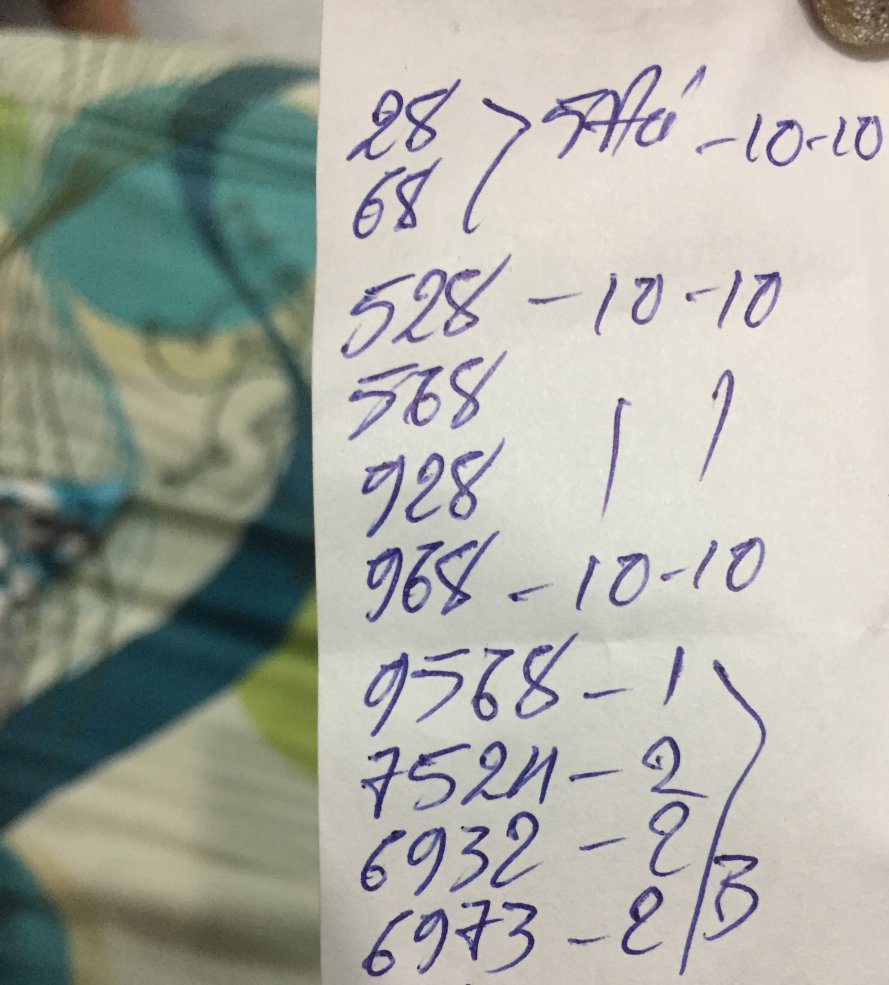 28
68
-10-10
528 - 10 - 10
568
928
968 - 10 - 10
9568 - 1
7524 - 2
6932 - 2
6973 - 2
B